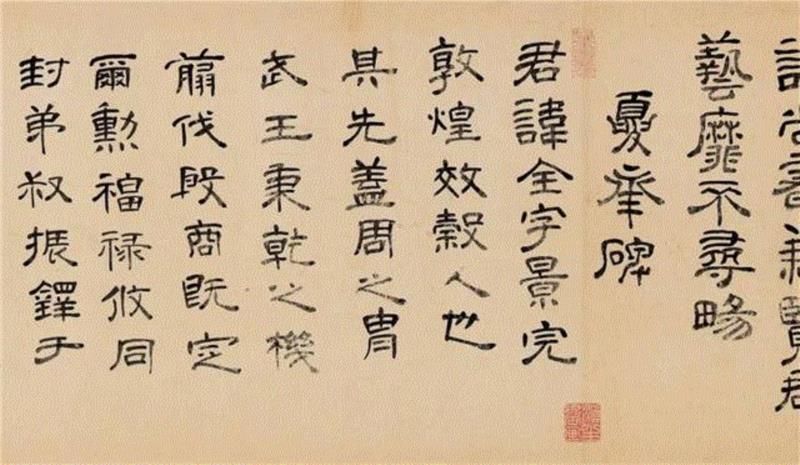 詩尚書兼覽羣
藝靡不尋畼
夏承碑
君諱全字景完
敦煌效穀人也
其先蓋周之胄
武王秉乾之機
翦伐殷商既定
爾勳福祿攸同
封弟叔振鐸于